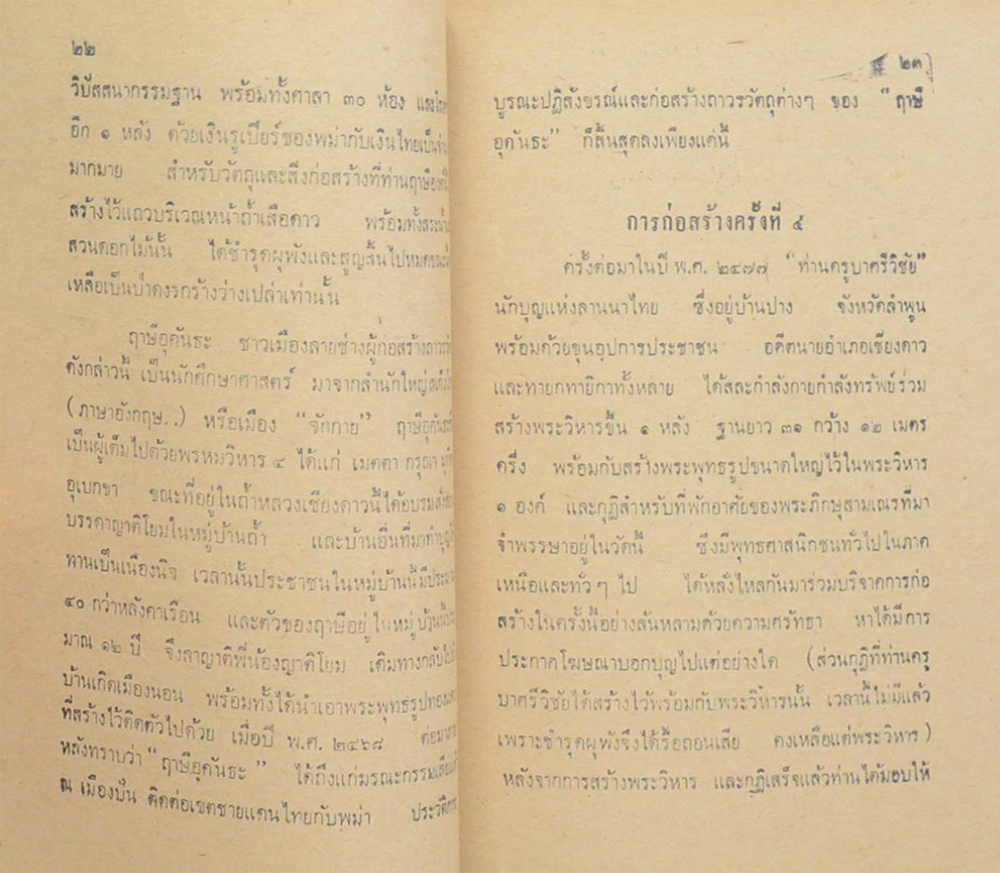 ๒๒
วิปัสสนากรรมฐาน พร้อมทั้งศาลา ๓๐ ห้อง
อีก ๑ หลัง ด้วยเงินรูเบียร์ของพม่ากับเงินไทยเป็น
มากมาย สำหรับวัตถุและสิ่งก่อสร้างที่ท่านฤาษี
สร้างไว้แถวบริเวณหน้าถ้ำเสือดาว พร้อมทั้ง
สวนดอกไม้นั้น ได้ชำรุดผุพังและสูญสิ้นไปหมด
เหลือเป็นป่าดงรกร้างว่างเปล่าเท่านั้น
ฤาษีอุคันธะ ชาวเมืองลายช่างผู้ก่อสร้าง
ดังกล่าวนี้ เป็นนักศึกษาศาสตร์ มาจากสำนักใหญ่
(ภาษาอังกฤษ..) หรือเมือง “จักกาย”
เป็นผู้เต็มไปด้วยพรหมวิหาร ๔ ได้แก่ เมตตา กรุณา
อุเบกขา ขณะที่อยู่ในถ้ำหลวงเชียงดาวนี้ได้อบรม
บรรดาญาติโยมในหมู่บ้านถ้ำ และบ้านอื่นที่มาทำบุญ
ทานเป็นเนืองนิจ เวลานั้นประชาชนในหมู่บ้านนี้มี
๔๐ กว่าหลังคาเรือน และตัวของฤาษีอยู่ในหมู่บ้านนี้
มาณ ๑๒ ปี จึงลาญาติพี่น้องญาติโยม เดินทางกลับ
บ้านเกิดเมืองนอน พร้อมทั้งได้นำเอาพระพุทธรูป
ที่สร้างไว้ติดตัวไปด้วย เมื่อปี พ.ศ. ๒๔๖๘ ต่อมา
หลังทราบว่า “ฤาษีอุคันธะ” ได้ถึงแก่มรณะกรรม
ณ เมืองปั่น ติดต่อเขตชายแดนไทยกับพม่า
๒๓
บูรณะปฏิสังขรณ์และก่อสร้างถาวรวัตถุต่างๆ ของ “ฤาษี
อุคันธะ” ก็สิ้นสุดลงเพียงแค่นี้
การก่อสร้างครั้งที่ ๔
ครั้งต่อมาในปี พ.ศ. ๒๔๗๗ “ท่านครูบาศรีวิชัย”
นักบุญแห่งลานนาไทย ซึ่งอยู่บ้านปาง จังหวัดลำพูน
พร้อมด้วยขุนอุปการประชาชน อดีตนายอำเภอเชียงดาว
และทายกทายิกาทั้งหลาย ได้สละกำลังกายกำลังทรัพย์ร่วม
สร้างพระวิหารขึ้น ๑ หลัง ฐานยาว ๓๑ กว้าง ๑๒ เมตร
ครึ่ง พร้อมกับสร้างพระพุทธรูปขนาดใหญ่ไว้ในพระวิหาร
๑ องค์ และกุฏิสำหรับที่พักอาศัยของพระภิกษุสามเณรที่มา
จำพรรษาอยู่ในวัดนี้ ซึ่งมีพุทธศาสนิกชนทั่วไปในภาค
เหนือและทั่วๆ ไป ได้หลั่งไหลกันมาร่วมบริจาคการก่อ
สร้างในครั้งนี้อย่างล้นหลามด้วยความศรัทธา หาได้มีการ
ประกาศโฆษณาบอกบุญไปแต่อย่างใด (ส่วนกุฏิที่ท่านครู
บาศรีวิชัยได้สร้างไว้พร้อมกับพระวิหารนั้น เวลานี้ไม่มีแล้ว
เพราะชำรุดผุพังจึงได้รื้อถอนเสีย คงเหลือแต่พระวิหาร)
หลังจากการสร้างพระวิหาร และกุฏิเสร็จแล้วท่านได้มอบให้